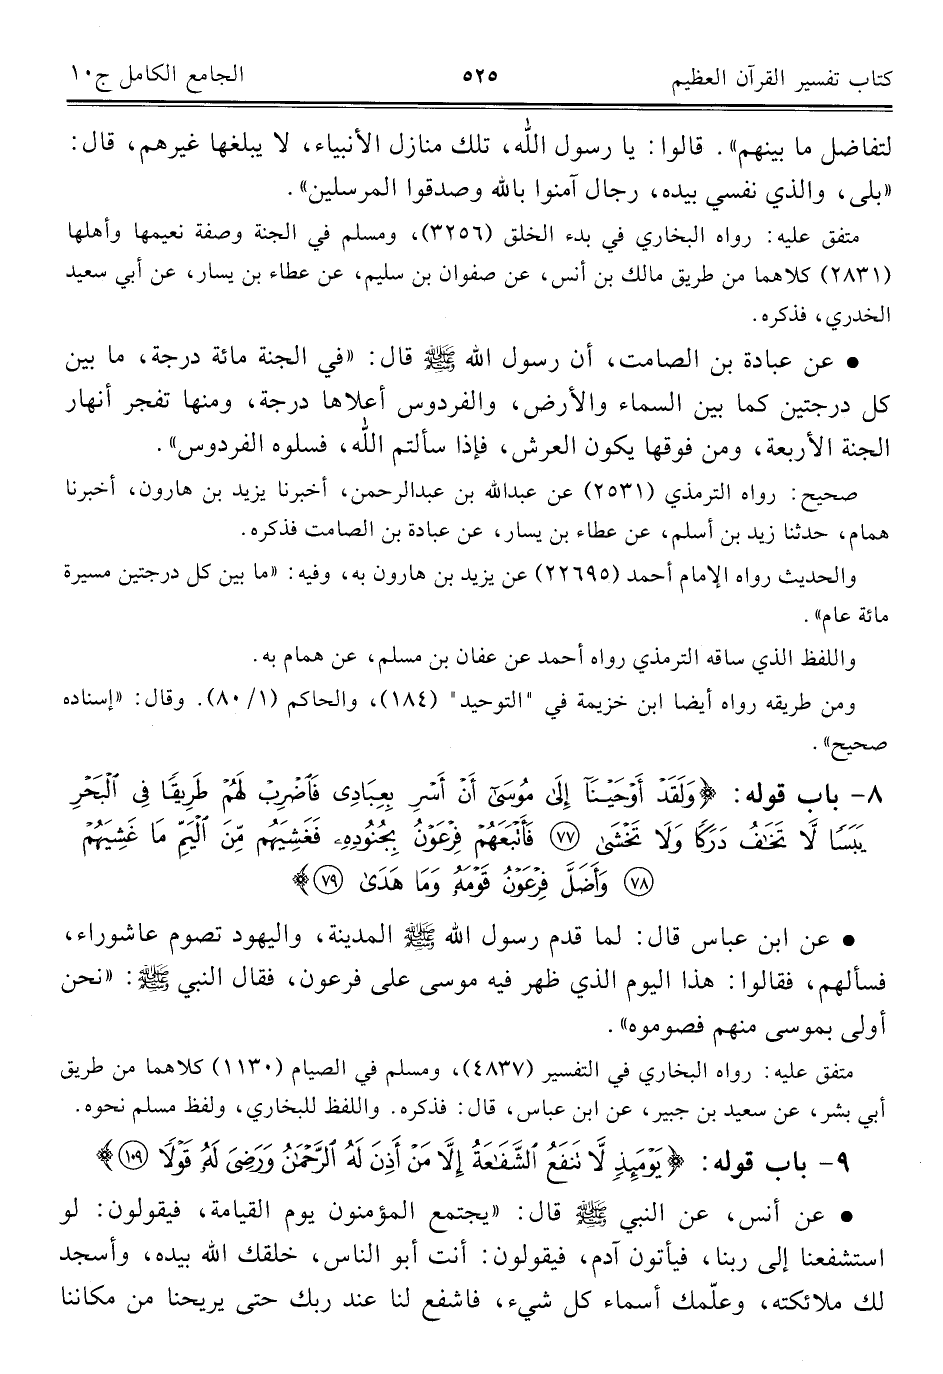 كتاب تفسير القرآن العظيم ٥٢٥ الجامع الكامل ج١٠
لتفاضل ما بينهم». قالوا: يا رسول الله، تلك منازل الأنبياء، لا يبلغها غيرهم، قال:
«بلى، والذي نفسي بيده، رجال آمنوا بالله وصدقوا المرسلين».
متفق عليه: رواه البخاري في بدء الخلق (٣٢٥٦)، ومسلم في الجنة وصفة نعيمها وأهلها
(٢٨٣١) كلاهما من طريق مالك بن أنس، عن صفوان بن سليم، عن عطاء بن يسار، عن أبي سعيد
الخدري، فذكره.
• عن عبادة بن الصامت، أن رسول الله ﷺ قال: «في الجنة مائة درجة، ما بين
كل درجتين كما بين السماء والأرض، والفردوس أعلاها درجة، ومنها تفجر أنهار
الجنة الأربعة، ومن فوقها يكون العرش، فإذا سألتم الله، فسلوه الفردوس».
صحيح: رواه الترمذي (٢٥٣١) عن عبدالله بن عبدالرحمن، أخبرنا يزيد بن هارون، أخبرنا
همام، حدثنا زيد بن أسلم، عن عطاء بن يسار، عن عبادة بن الصامت فذكره.
والحديث رواه الإمام أحمد (٢٢٦٩٥) عن يزيد بن هارون به، وفيه: «ما بين كل درجتين مسيرة
مائة عام».
واللفظ الذي ساقه الترمذي رواه أحمد عن عفان بن مسلم، عن همام به.
ومن طريقه رواه أيضا ابن خزيمة في "التوحيد" (١٨٤)، والحاكم (١/ ٨٠). وقال: «إسناده
صحيح».
٨- باب قوله: ﴿وَلَقَدۡ أَوۡحَيۡنَآ إِلَىٰ مُوسَىٰٓ أَنۡ أَسۡرِ بِعِبَادِى فَٱضۡرِبۡ لَهُمۡ طَرِيقًا فِى ٱلۡبَحۡرِ
يَبَسًا لَّا تَخَٰفُ دَرَكًا وَلَا تَخۡشَىٰ ﴿٧٧﴾ فَأَتۡبَعَهُمۡ فِرۡعَوۡنُ بِجُنُودِهِۦ فَغَشِيَهُم مِّنَ ٱلۡيَمِّ مَا غَشِيَهُمۡ
﴿٧٨﴾ وَأَضَلَّ فِرۡعَوۡنُ قَوۡمَهُۥ وَمَا هَدَىٰ ﴿٧٩﴾﴾
• عن ابن عباس قال: لما قدم رسول الله ﷺ المدينة، واليهود تصوم عاشوراء،
فسألهم، فقالوا: هذا اليوم الذي ظهر فيه موسى على فرعون، فقال النبي ﷺ: «نحن
أولى بموسى منهم فصوموه».
متفق عليه: رواه البخاري في التفسير (٤٨٣٧)، ومسلم في الصيام (١١٣٠) كلاهما من طريق
أبي بشر، عن سعيد بن جبير، عن ابن عباس، قال: فذكره. واللفظ للبخاري، ولفظ مسلم نحوه.
٩- باب قوله: ﴿يَوۡمَئِذٖ لَّا تَنفَعُ ٱلشَّفَٰعَةُ إِلَّا مَنۡ أَذِنَ لَهُ ٱلرَّحۡمَٰنُ وَرَضِىَ لَهُۥ قَوۡلًا ﴿١٠٩﴾﴾
• عن أنس، عن النبي ﷺ قال: «يجتمع المؤمنون يوم القيامة، فيقولون: لو
استشفعنا إلى ربنا، فيأتون آدم، فيقولون: أنت أبو الناس، خلقك الله بيده، وأسجد
لك ملائكته، وعلّمك أسماء كل شيء، فاشفع لنا عند ربك حتى يريحنا من مكاننا